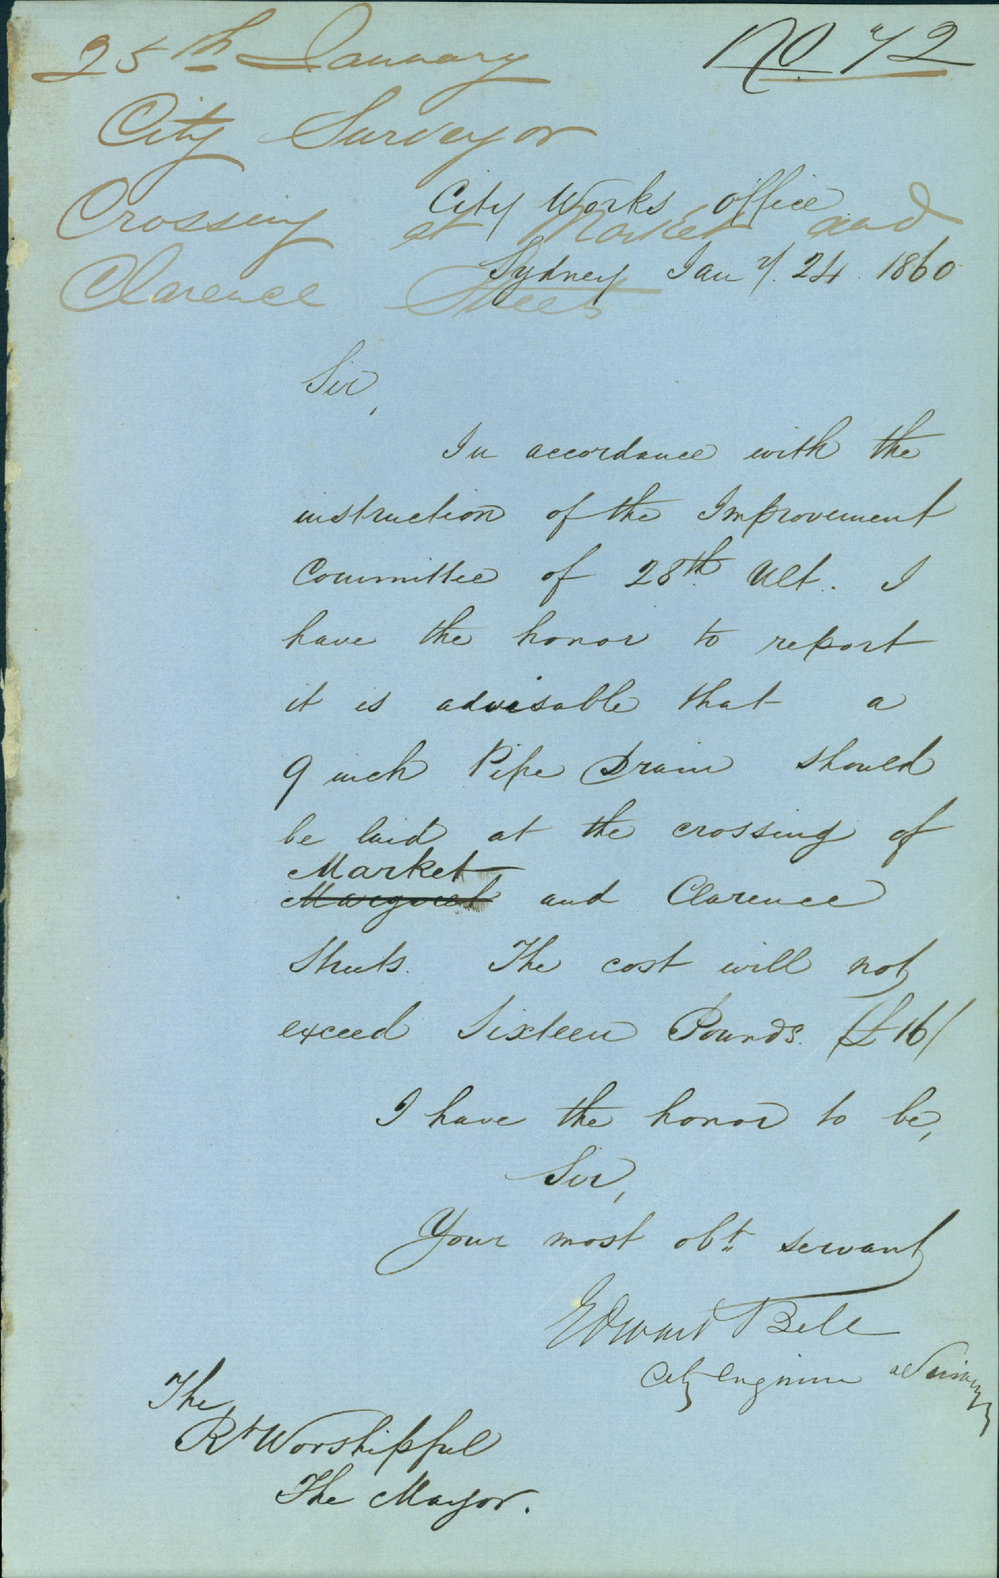 No 72
25th January
City Surveyor
Crossing at Market and
Clarence Streets
City Works office
Sydney Jany. 24. 1860
Sir,
In accordance with the
instruction of the Improvement
Committee of 28th Ult. I
have the honor to report
it is advisable that a
9 inch Pipe Drain should
be laid at the crossing of
Market
Margaret and Clarence
Streets. The cost will not
exceed Sixteen Pounds. (£16/
I have the honor to be,
Sir,
Your most obt. servant
Edward Bell
City Engineer & Surveyor
The
Rt Worshipful
The Mayor.